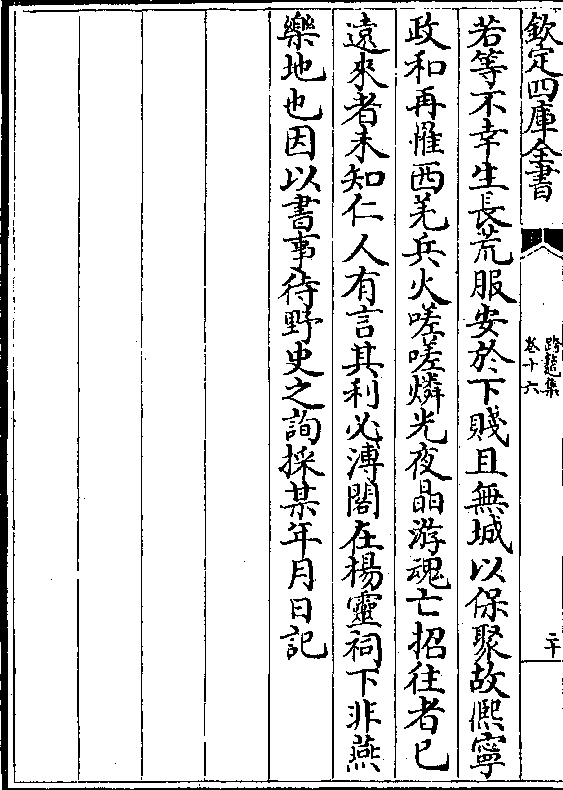 欽定四庫全書
跨鼇集
卷十六
二十
若等不幸生長荒服安於下賤且無城以保聚故熈寧
政和再惟西羌兵火嗟嗟燐光夜晶游魂亡招往者已
遠來者未知仁人有言其利必溥閣在楊靈祠下非燕
樂地也因以書事待野史之詢採某年月日記